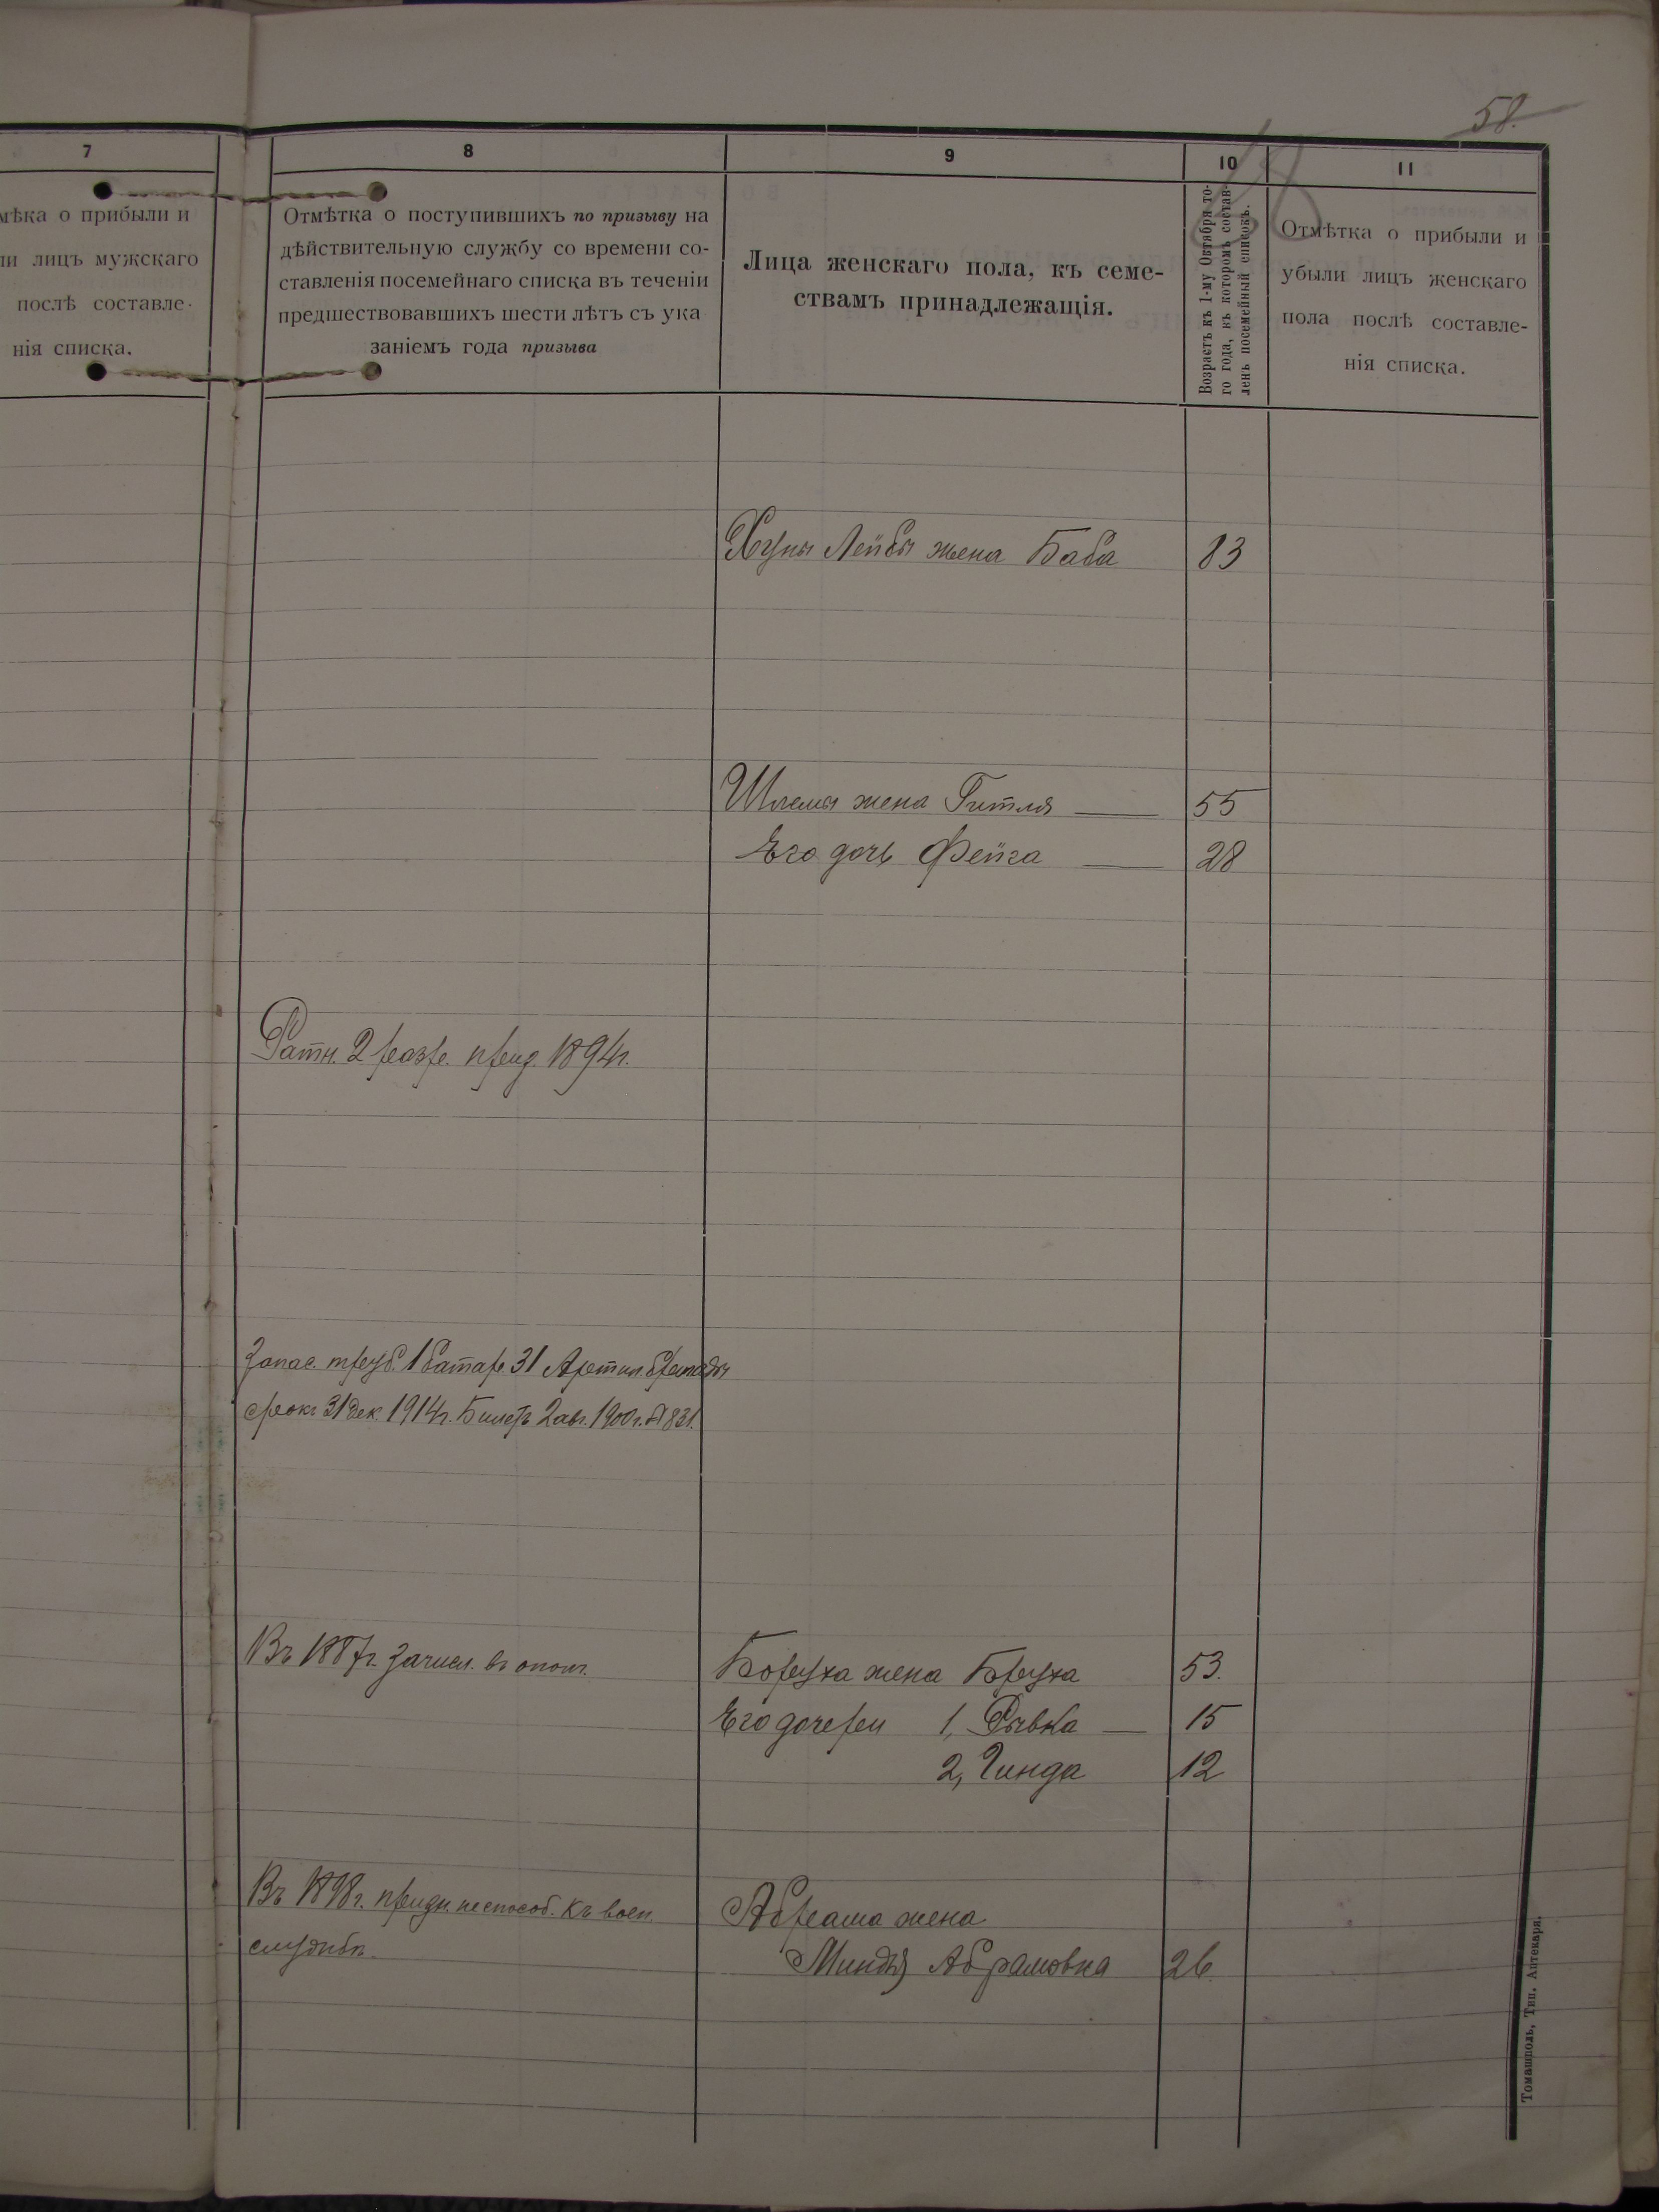 58.
58
7
8
9
10
11
мѣка о прибыли и
ли лицъ мужскаго
послѣ составле-
нія списка.
Отмѣтка о поступившихъ по призыву на
дѣйствительную службу со времени со-
ставленія посемейнаго списка въ теченіи
предшествовавшихъ шести лѣтъ съ ука
заніемъ года призыва
Лица женскаго пола, къ семе-
ствамъ принадлежащія.
Возрастъ къ 1-му Октября то-
го года, въ которомъ состав-
ленъ посемейный списокъ.
Отмѣтка о прибыли и
убыли лицъ женскаго
пола послѣ составле-
нія списка.
Хуны Лейбы жена Баба 83
Шлемы жена Гитля 55
Его дочь Фейга 28
Ратн. 2 разр. приз. 1894г.
Запас. труб. 1 батар. 31 Артил. бригады
срокъ 31 дек. 1914г. Билетъ 2 авг. 1900г. № 831.
Въ 1887г. зачисл. въ опол. Боруха жена Бруха 53.
Его дочери 1, Рывка 15
2, Гинда 12
Въ 1898г. придн. неспособ. къ воен. Абрама жена
службѣ. Миндя Абрамовна 26.
Томашполь, Тип. Аптекаря.